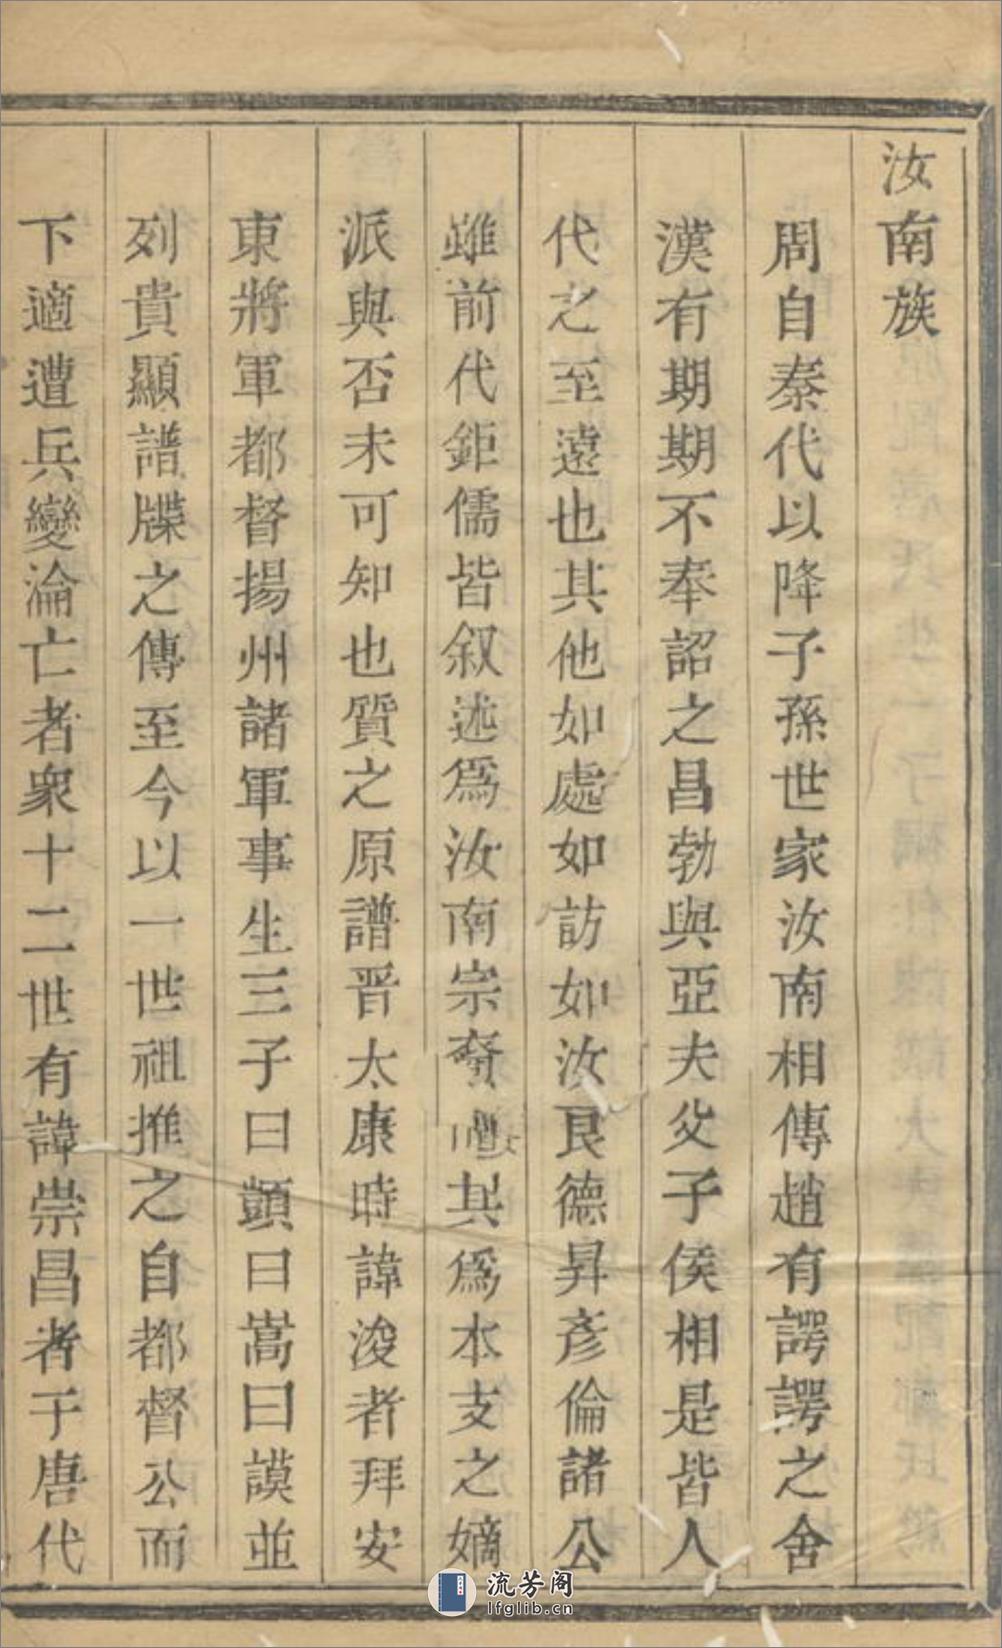 汝南族
周自秦代以降子孫世家汝南相傳趙有諤諤之舍
漢有期期不奉詔之昌勃與亞夫父子侯相是皆人
代之至遠也其他如處如訪如汝艮德昇彥倫諸公
雖前代鉅儒皆叙述爲汝南宗裔其爲本支之嫡
派與否未可知也質之原譜晋太康時諱浚者拜安
東將軍都督揚州諸軍事生三子曰顗曰嵩曰謨並
列貴顯譜牒之傳至今以一世祖推之自都督公而
下適遭兵變淪亡者衆十二世有諱崇昌者于唐代
流芳阁
lfglib.cn